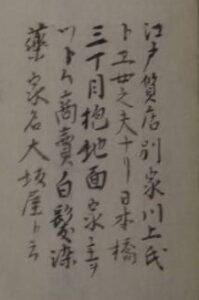 江戸質店別家川上氏
ト工女之夫ナリ日本橋
三丁目抱地面家主ヲ
ツトム商賣白髪染
薬家名大坂屋ト云